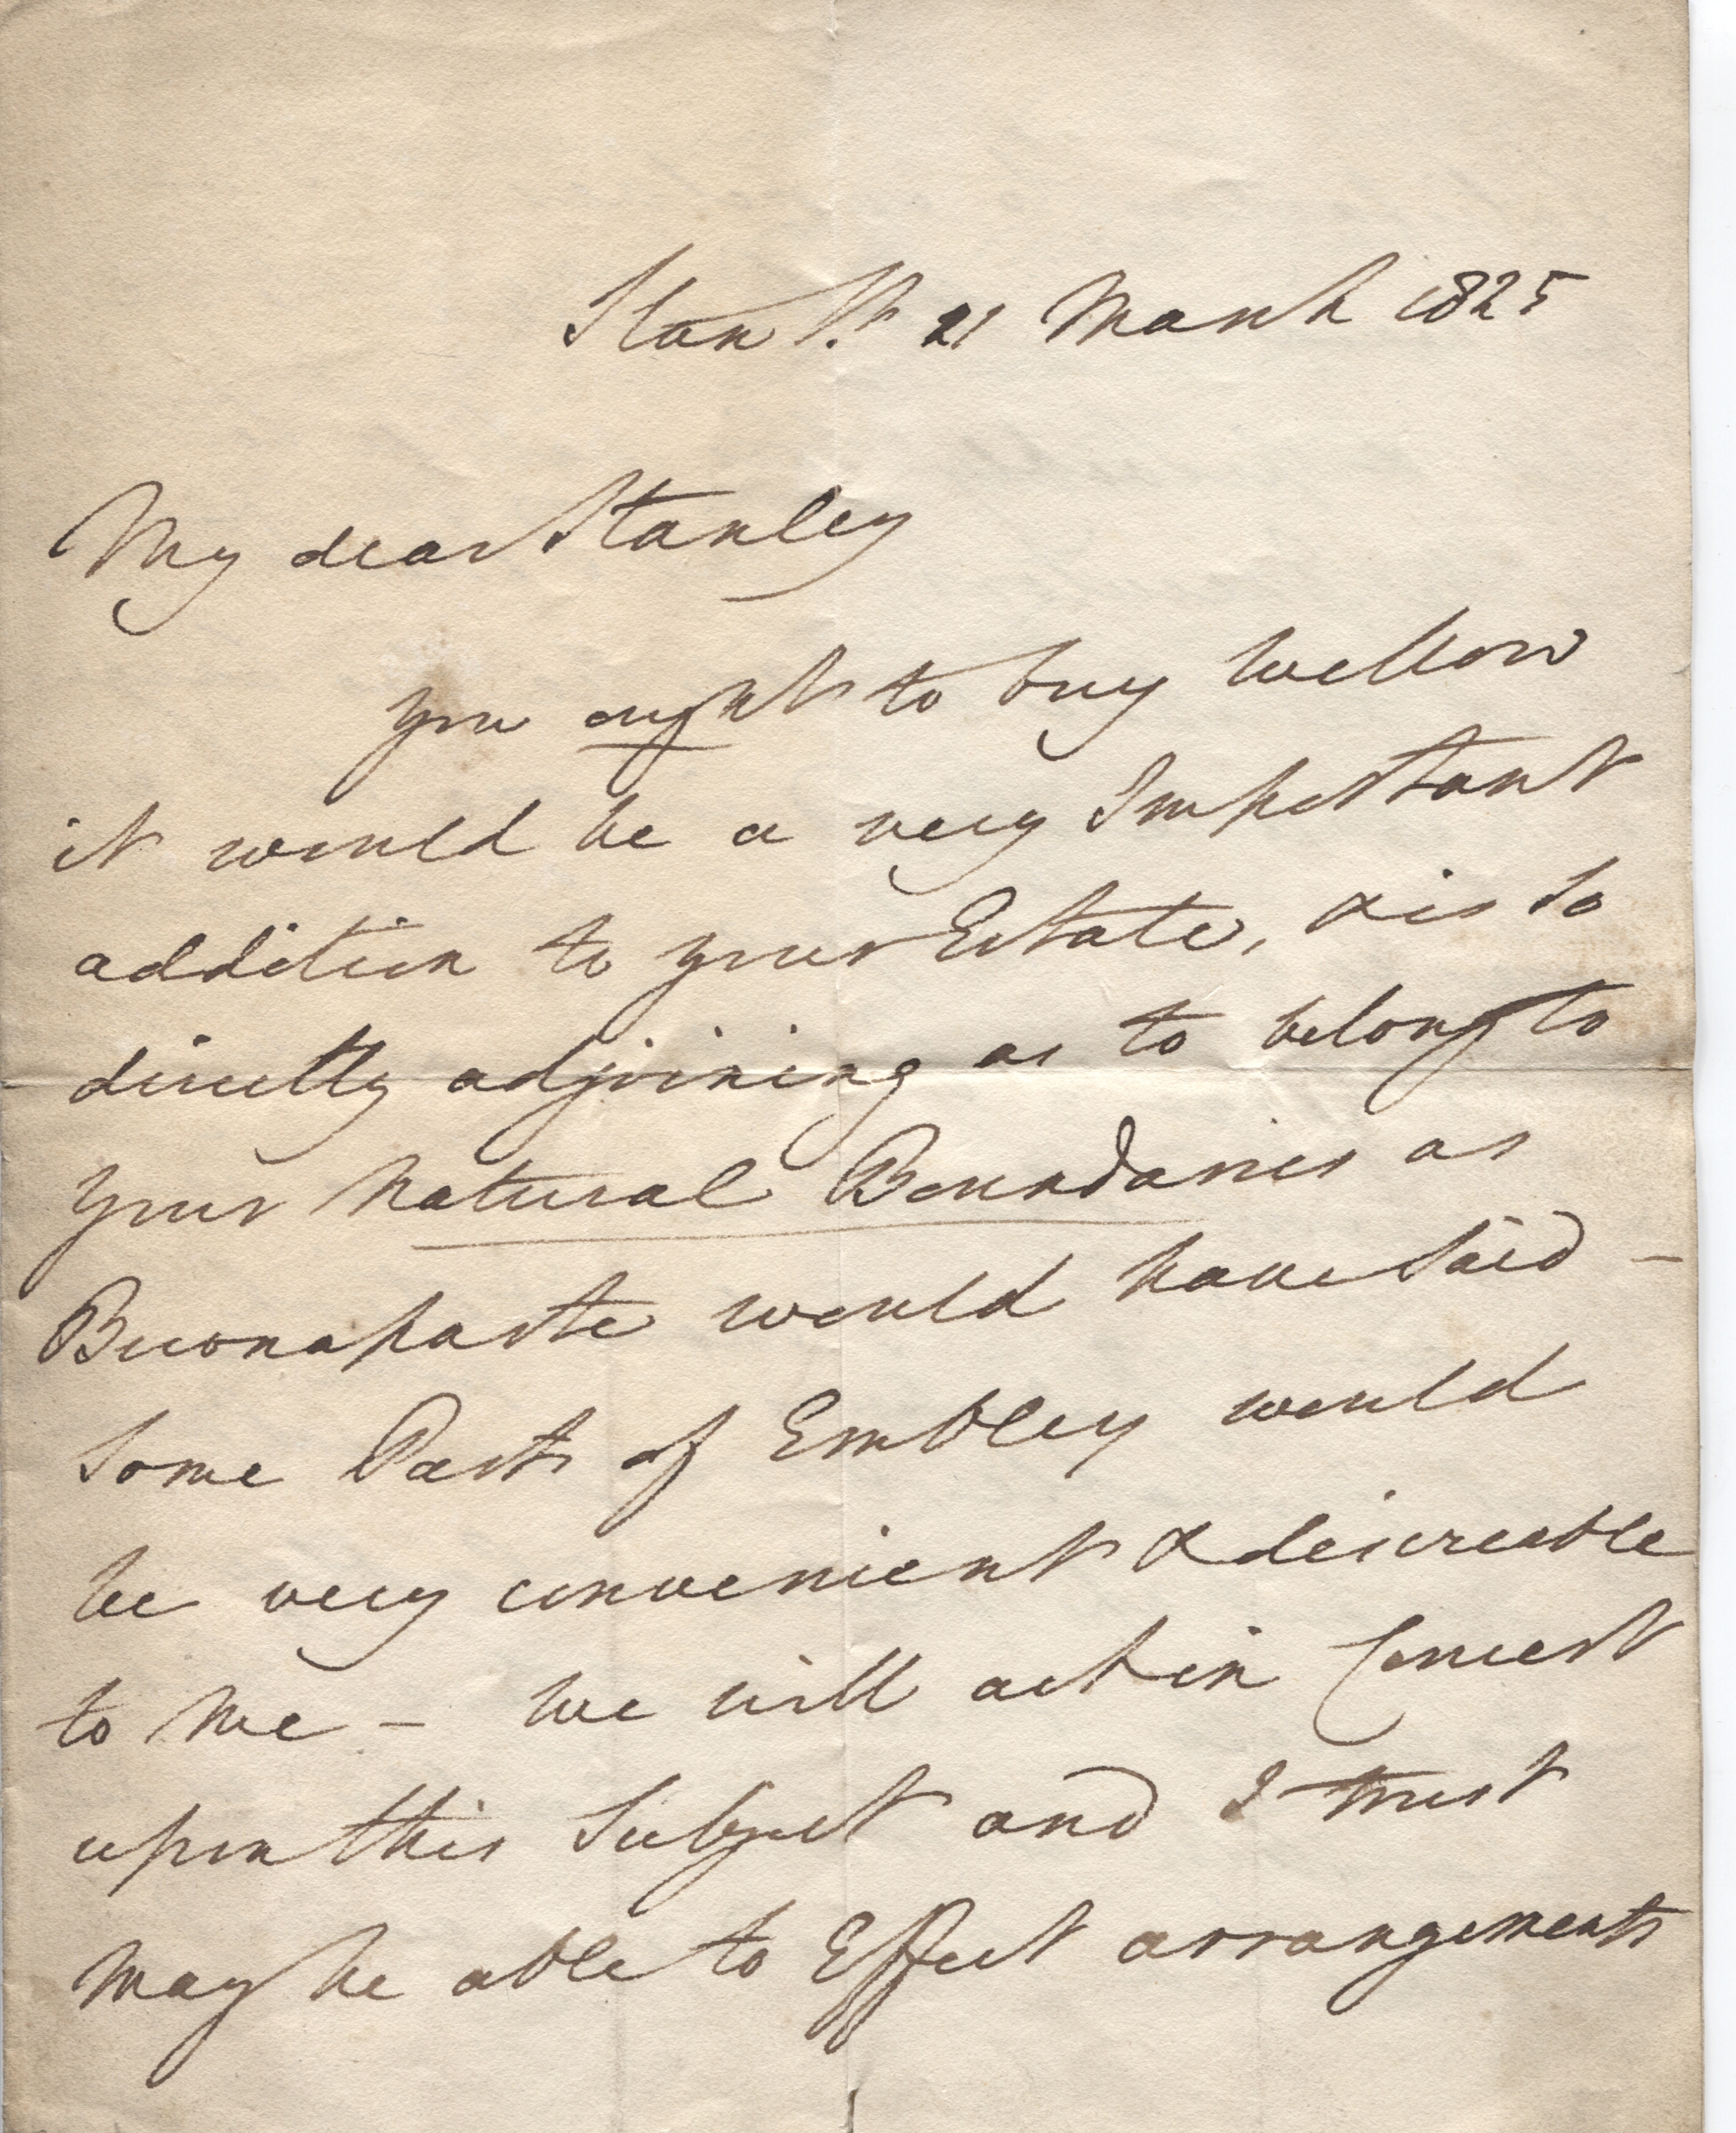 Stan St. 21 March 1825
My dear Stanley
you ought to buy Wellow
it would be a very Important
addition to your Estate, & is so
directly adjoining as to belong to
your Natural Boundaries as
Buonaparte would have said –
Some Parts of Embley would
be very convenient & desireable
to me – we will act in Concert
upon this Subject and I trust
may be able to Effect arrangements